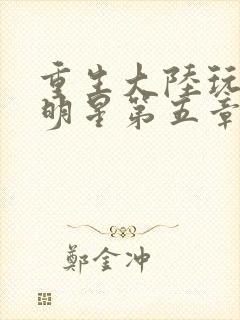 重生大陸玩
明星第五章
鄭金冲